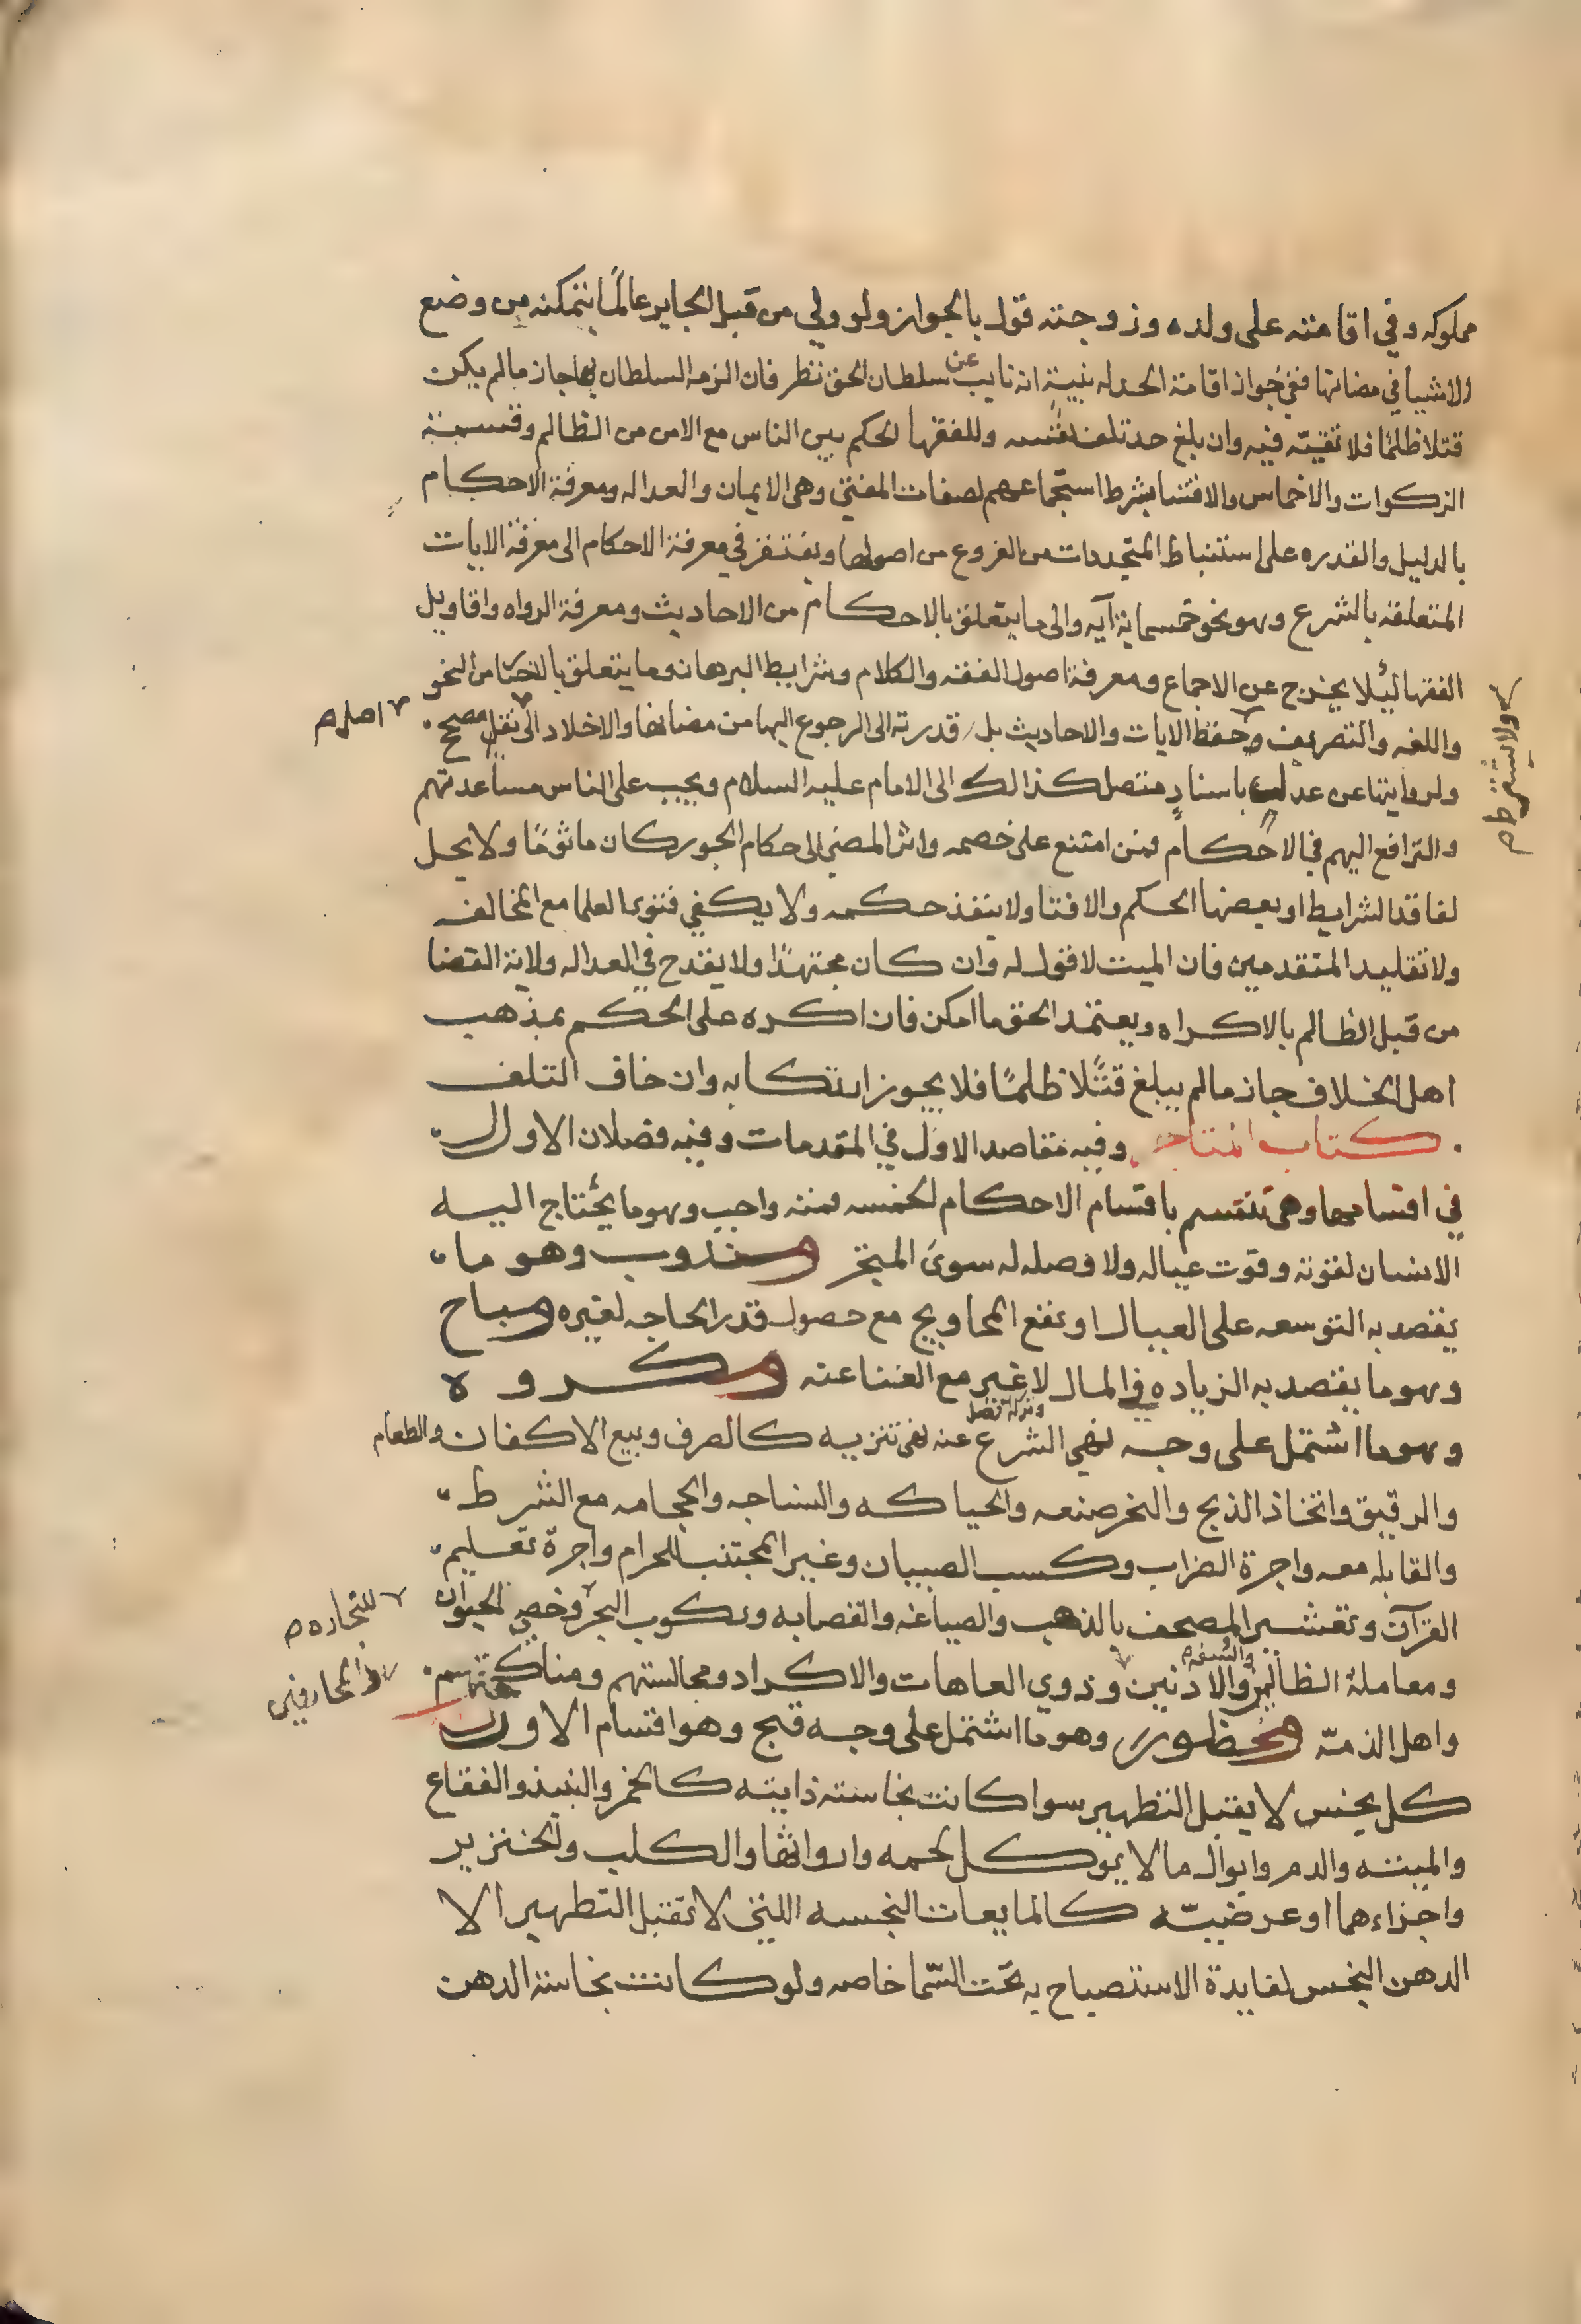 مملوكه وفي اقامته على ولده وزوجته قول بالجواز ولو ولي من قبل الجاير عالمًا بتمكنه من وضع
الاشيا في مضانها ففي جواز اقامة الحد له بنية انه نايب عن سلطان الحق نظر فان الزمه السلطان بها جاز مالم يكن
قتلا ظلمًا فلا تقيّه فيه وان بلغ حد تلف نفسه وللفقها الحكم بين الناس مع الامن من الظالم وقسمة
الزكوات والاخماس والافتا بشرط استجماعهم لصفات المفتي وهي الايمان والعداله ومعرفة الاحكام
بالدليل والقدره على استنباط المتجددات من الفروع من اصولها ويفتقر في معرفة الاحكام الى معرفة الايات
المتعلقه بالشرع وهو نحو خمسماية آيه والى ما يتعلق بالاحكام من الاحاديث ومعرفة الرواه واقاويل
الفقها لئلا يخرج عن الاجماع ومعرفة اصول الفقه والكلام وشرايط البرهان وما يتعلق بالاخبار من النحو
واللغه والتصريف و حفظ الايات والاحاديث بل قدرته الى الرجوع اليها من مضانها والاخلاد الى نقل مصحح
اصل م
ولا يشترط م
ولروايتها عن عدل باسنادٍ متصل كذالك الى الامام عليه السلام ويجب على الناس مساعدتهم
والترافع اليهم في الاحكام فمن امتنع على خصمه واثر المضي الى حكام الجور كان ماثومًا ولا يحل
لفاقد الشرايط او بعضها الحكم والافتا ولا ينفذ حكمه ولا يكفي فتوى العلما مع المخالف
ولا تقليد المتقدمين فان الميت لا قول له وان كان مجتهدًا ولا يقدح في العداله ولاية القضا
من قبل الظالم بالاكراه ويعتمد الحق ما امكن فان اكره على الحكم بمذهب
اهل الخلاف جاز مالم يبلغ قتلًا ظلمًا فلا يجوز ارتكابه وان خاف التلف
كتاب المتاجر وفيه مقاصد الاول في المقدمات وفيه فصلان الاول
في اقسامها وهي تنقسم باقسام الاحكام الخمسه فمنه واجب وهو ما يحتاج اليه
الانسان لقوته وقوت عياله ولا وصله له سوى المتجر ومندوب وهو ما
يقصد به التوسعه على العيال او نفع المحاويج مع حصول قدر الحاجه لغيره ومباح
وهو ما يقصد به الزياده في المال لا غير مع الغنا عنه ومكروه
وهو ما اشتمل على وجه نهي الشرع عنه نهي تنزيه كالصرف وبيع الاكفان والطعام
والرقيق واتخاذ الذبح والنحر صنعه والحياكه والنساجه والحجامه مع الشرط
والقابله معه واجرة الضراب وكسب الصبيان وغير المجتنب للحرام واجرة تعليم
القرآن وتعشير المصحف بالذهب والصياغه والقصابه وركوب البحر وخصي الحيوان
للتجاره م
ومعاملة الظالمين والسفله والادنين وذوي العاهات والاكراد ومجالستهم ومناكحتهم
والمحارفين
واهل الذمّه ومحظور وهو ما اشتمل على وجه قبح وهو اقسام الاول
كل نجس لا يقبل التطهير سوا كانت نجاسته ذاتيه كالخمر والنبيذ والفقاع
والميته والدم وابوال ما لا يوكل لحمه وارواثها والكلب والخنزير
واجزاءهما او عرضيّه كالمايعات النجسه اللتي لا تقبل التطهير الا
الدهن النجس لفايدة الاستصباح به تحت السّما خاصه ولو كانت نجاسة الدهن